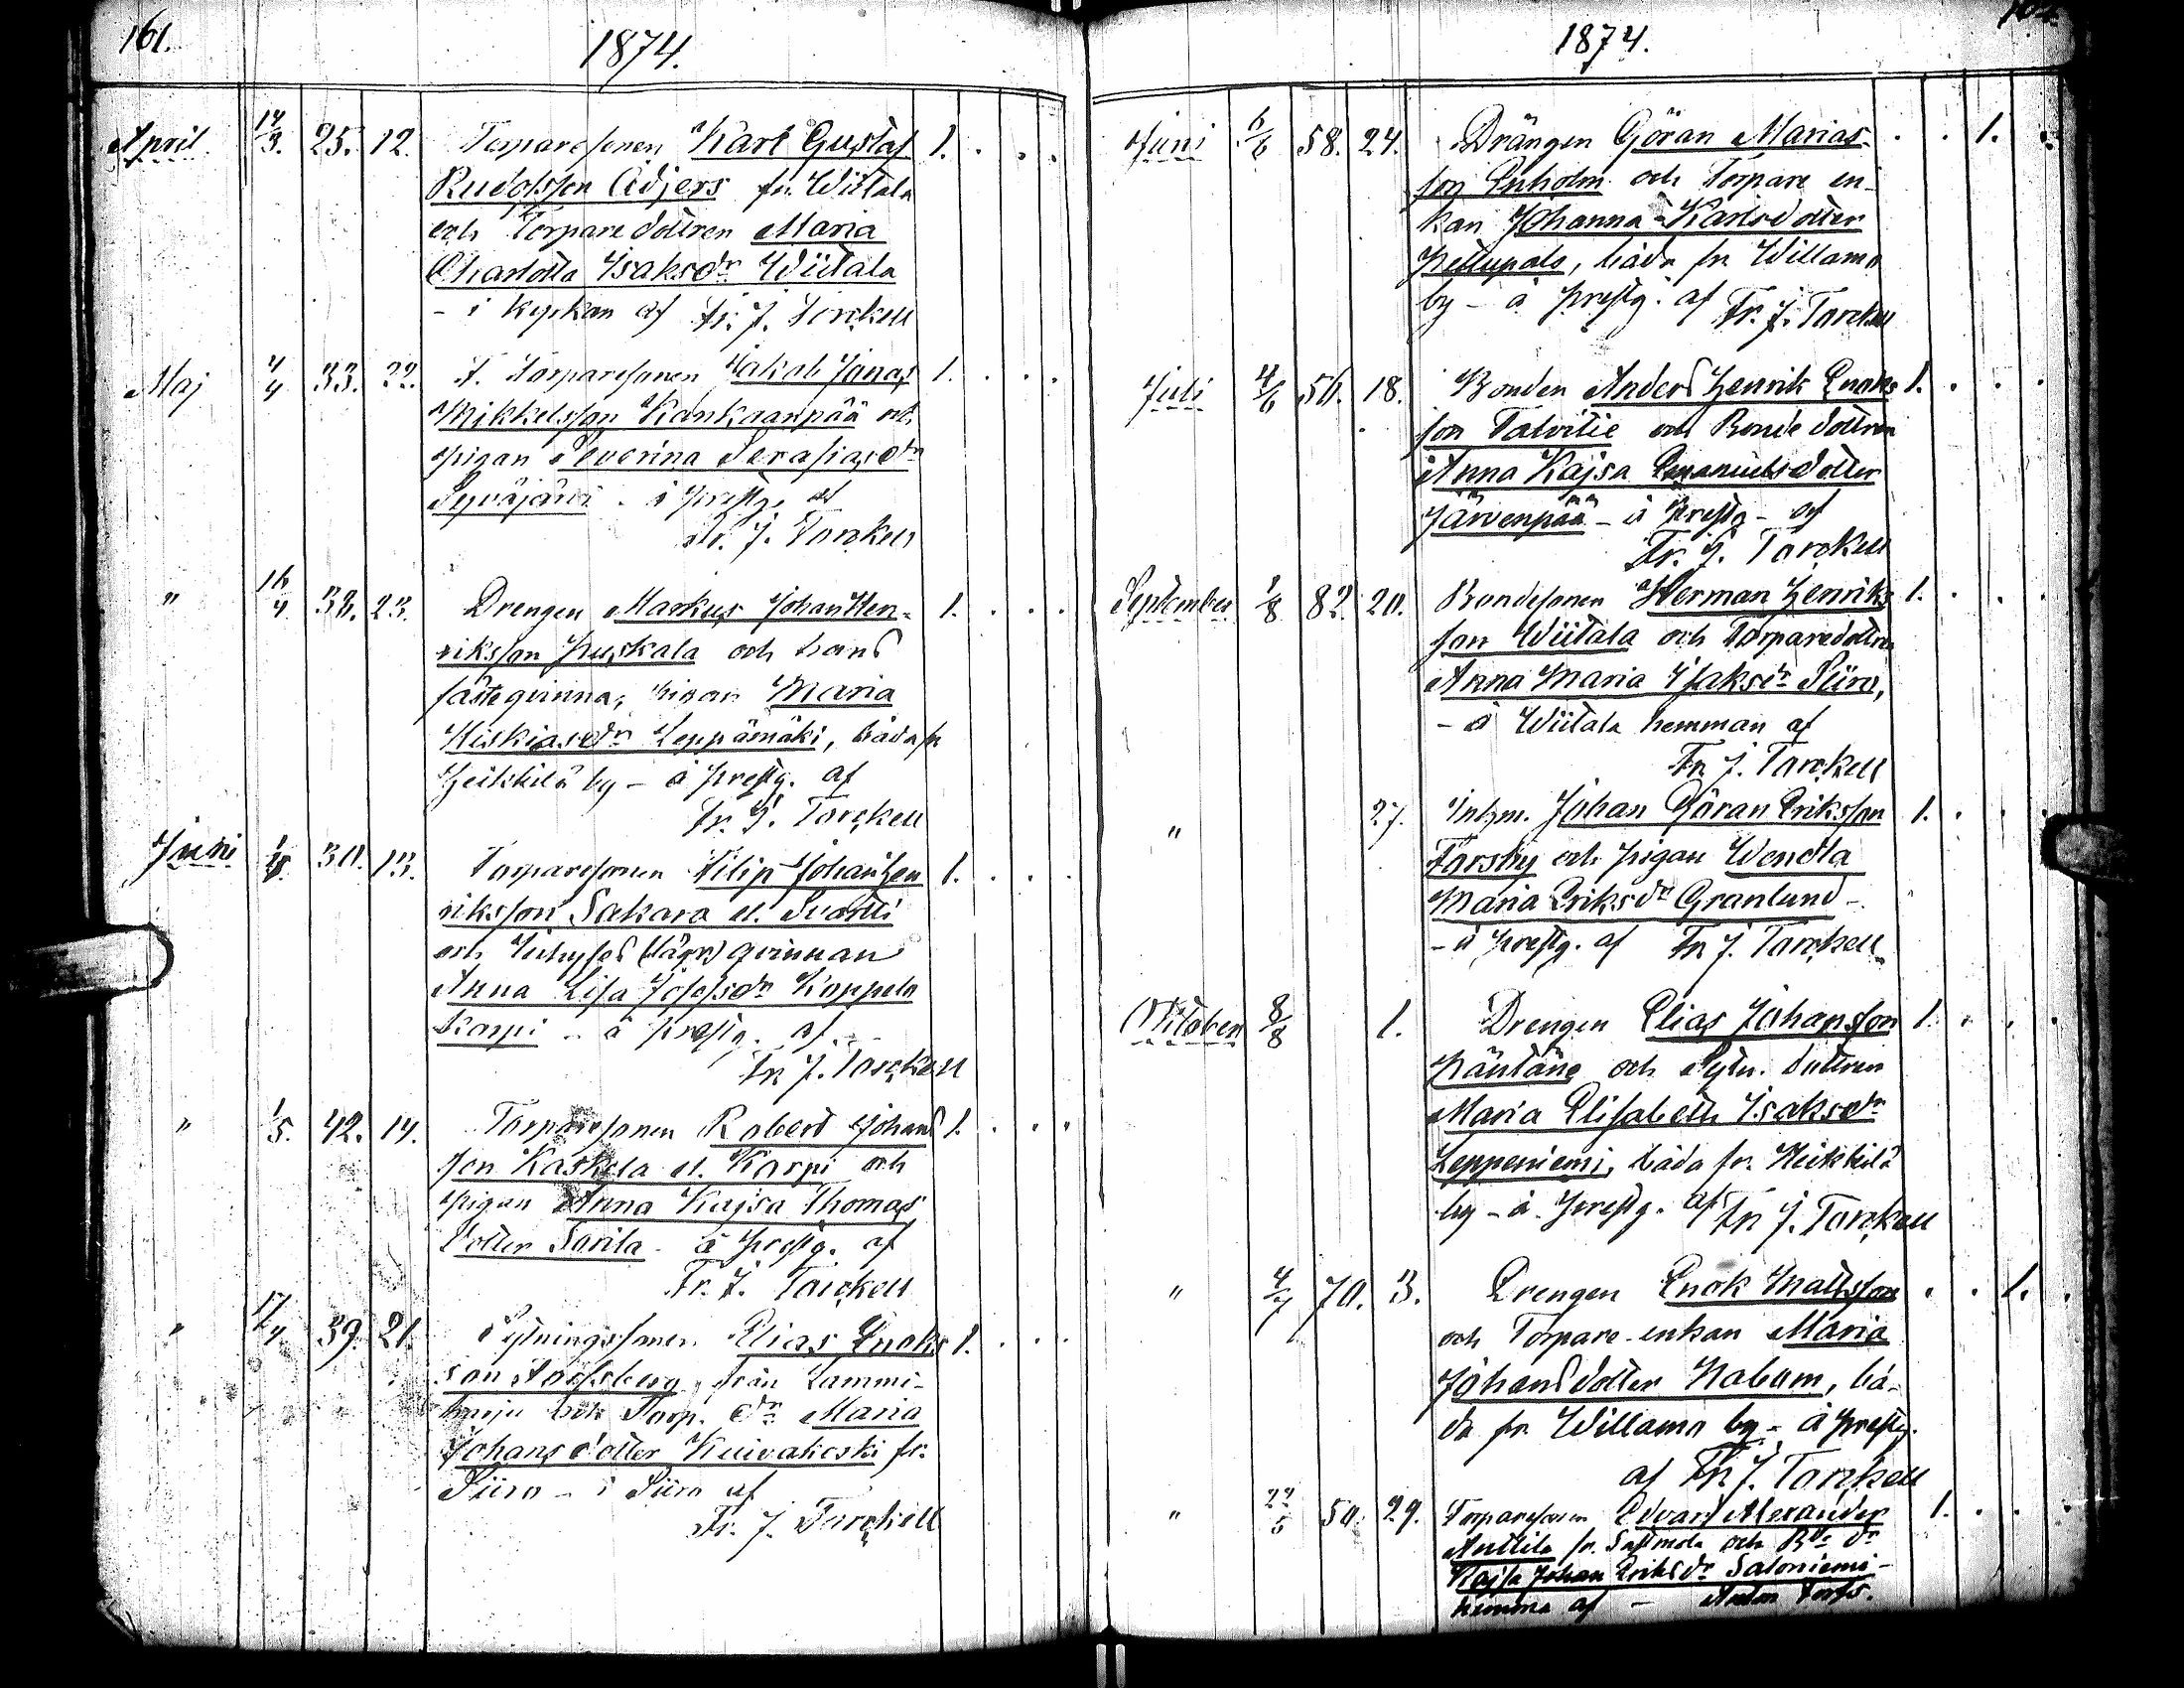 161.
1874.
April 14/3. 25. 12. Torparesonen Karl Gustaf 1.
Rudolfsson Adjers fr. Wiitala
och Torparedottren Maria
Charlotta Isaksdr Wiitala
- i kyrkan af Fr. J. Torckell
Maj 4/4 33. 22. F. Torparesonen Jakob Jonas 1.
Mikkelsson Kankaanpää och
pigan Severina Serafiasdr
Syväjärvi - å prestg. af
Fr. J. Torckell
" 16/4. 38. 23. Drengen Markus Johan Hen- 1.
riksson Puskala och hans
fästeqvinna, pigan Maria
Hiskiasdr Leppämäki, båda fr
Heikkilä by - å prestg. af
Fr. J. Torckell
Juni 30. 13. Torparesonen Filip Johan Hen 1.
riksson Sakara el. Svartti
och Inhyses (lägr) qvinnan
Anna Lisa Josefsdr Koppela
Karpi - å prestg. af
Fr J. Torckell
" 1/5. 42. 14. Torparesonen Robert Johans 1.
son Kaskela el. Karpi och
pigan Anna Kajsa Thomas
dotter Sarila - å prestg. af
Fr. J. Torckell
" 17/4 39. 21. Sytningssonen Elias Enoks 1.
son Forssberg från Lammi-
harju och Torp. dr Maria
Johansdotter Kuivakoski fr.
Siiro - i Siiro af
Fr. J. Torckell
1874.
Juni 6/6 58. 24. Drängen Göran Marias- 1.
son Enholm och Torpare en-
kan Johanna Karlsdotter
Pellupalo, båda fr Willamo
by - å prestg. af Fr. J. Torckell
Juli 4/6 56. 18. Bonden Anders Henrik Enoks 1.
son Talvitie och Bonde dottren
Anna Kajsa Emanuelsdotter
Järvenpää - å prestg - af
Fr. J. Torckell
September 1/8 82. 20. Bondesonen Herman Henriks 1.
son Wiitala och Torparedottren
Anna Maria Isaksdr Siiro,
- å Wiitala hemman af
Fr J. Torckell
" 27. Inhm. Johan Göran Eriksson 1.
Forsby och pigan Wendla
Maria Eriksdr Granlund -
- å prestg. af Fr J. Torckell
Oktober 8/8 1. Drengen Elias Johansson 1.
Mäntäne och Sytn. dottren
Maria Elisabeth Isaksdr
Leppeniemi, båda fr. Heikkilä
by - å prestg. af Fr J. Torckell
" 4/7 70. 3. Drengen Enok Mattsson 1.
och Torpare-enkan Maria
Johansdotter Nabum, bå-
da fr. Willamo by - å prestg.
af Fr J. Torckell
" 22/5 50. 29. Torparesonen Edvard Alexander 1.
Anttila fr. Sastmola och Bde dr
Kajsa Johan Eriksdr Saloniemi -
hemma af - Anton Forss.